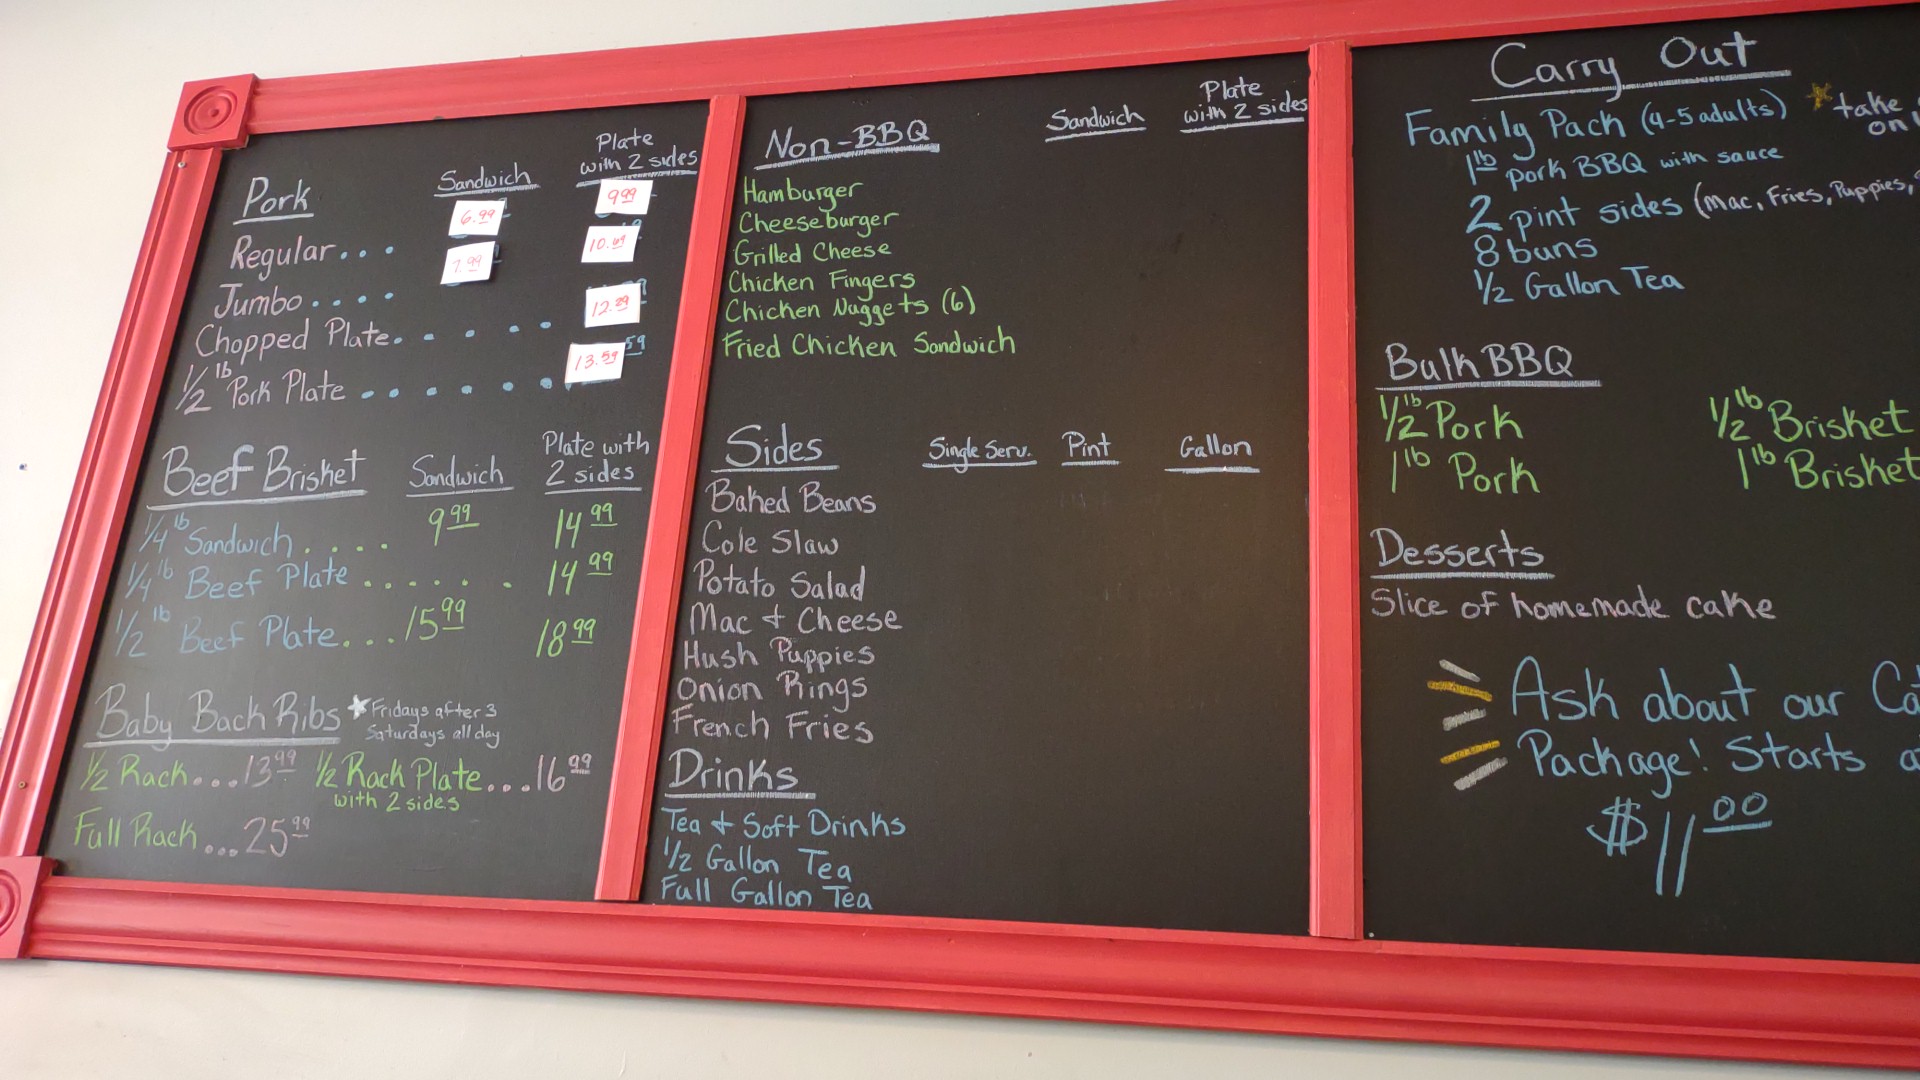 Pork Sandwich Plate with 2 sides
Regular... 6.99 9.99
Jumbo.... 7.99 10.49
Chopped Plate...... 12.29
1/2 lb Pork Plate....... 13.59
Beef Brisket Sandwich Plate with 2 sides
1/4 lb Sandwich.... 9.99 14.99
1/4 lb Beef Plate...... 14.99
1/2 lb Beef Plate... 15.99 18.99
Baby Back Ribs Fridays after 3
Saturdays all day
1/2 Rack...13.99 1/2 Rack Plate...16.99
with 2 sides
Full Rack...25.99
Non-BBQ Sandwich Plate with 2 sides
Hamburger
Cheeseburger
Grilled Cheese
Chicken Fingers
Chicken Nuggets (6)
Fried Chicken Sandwich
Sides Single Serv. Pint Gallon
Baked Beans
Cole Slaw
Potato Salad
Mac + Cheese
Hush Puppies
Onion Rings
French Fries
Drinks
Tea + Soft Drinks
1/2 Gallon Tea
Full Gallon Tea
Carry Out
Family Pack (4-5 adults) take
1 lb pork BBQ with sauce
2 pint sides (Mac, Fries, Puppies,
8 buns
1/2 Gallon Tea
Bulk BBQ
1/2 lb Pork 1/2 lb Brisket
1 lb Pork 1 lb Brisket
Desserts
Slice of homemade cake
Ask about our
Package! Starts
$11.00